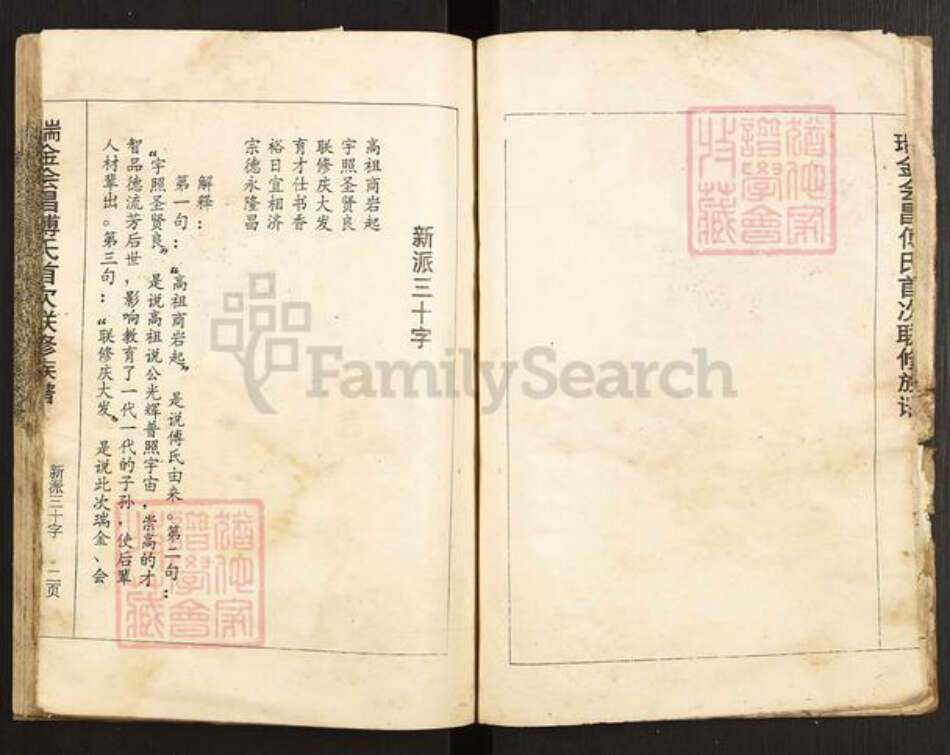 瑞金会昌傅氏首次联修族谱
猶他家
譜學會
收藏
新派三十字
高祖商岩起
宇照圣贤良
联修庆大发
育才仕书香
裕日宜相济
宗德永隆昌
解释：
第一句：“高祖商岩起”，是说傅氏由来。第二句：
“宇照圣贤良”，是说高祖说公光辉普照宇宙，崇高的才
智品德流芳后世，影响教育了一代一代的子孙，使后辈
人材辈出。第三句：“联修庆大发”，是说此次瑞金、会
瑞金会昌傅氏首次联修族谱
新派三十字
二页
猶他家
譜學會
收藏
FamilySearch